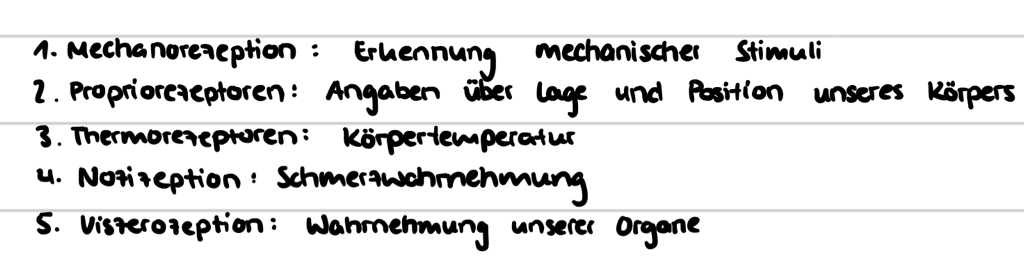 1. Mechanorezeption : Erkennung mechanischer Stimuli
2. Propriorezeptoren: Angaben über Lage und Position unseres Körpers
3. Thermorezeptoren: Körpertemperatur
4. Nozizeption: Schmerzwahrnehmung
5. Viszerozeption: Wahrnehmung unserer Organe